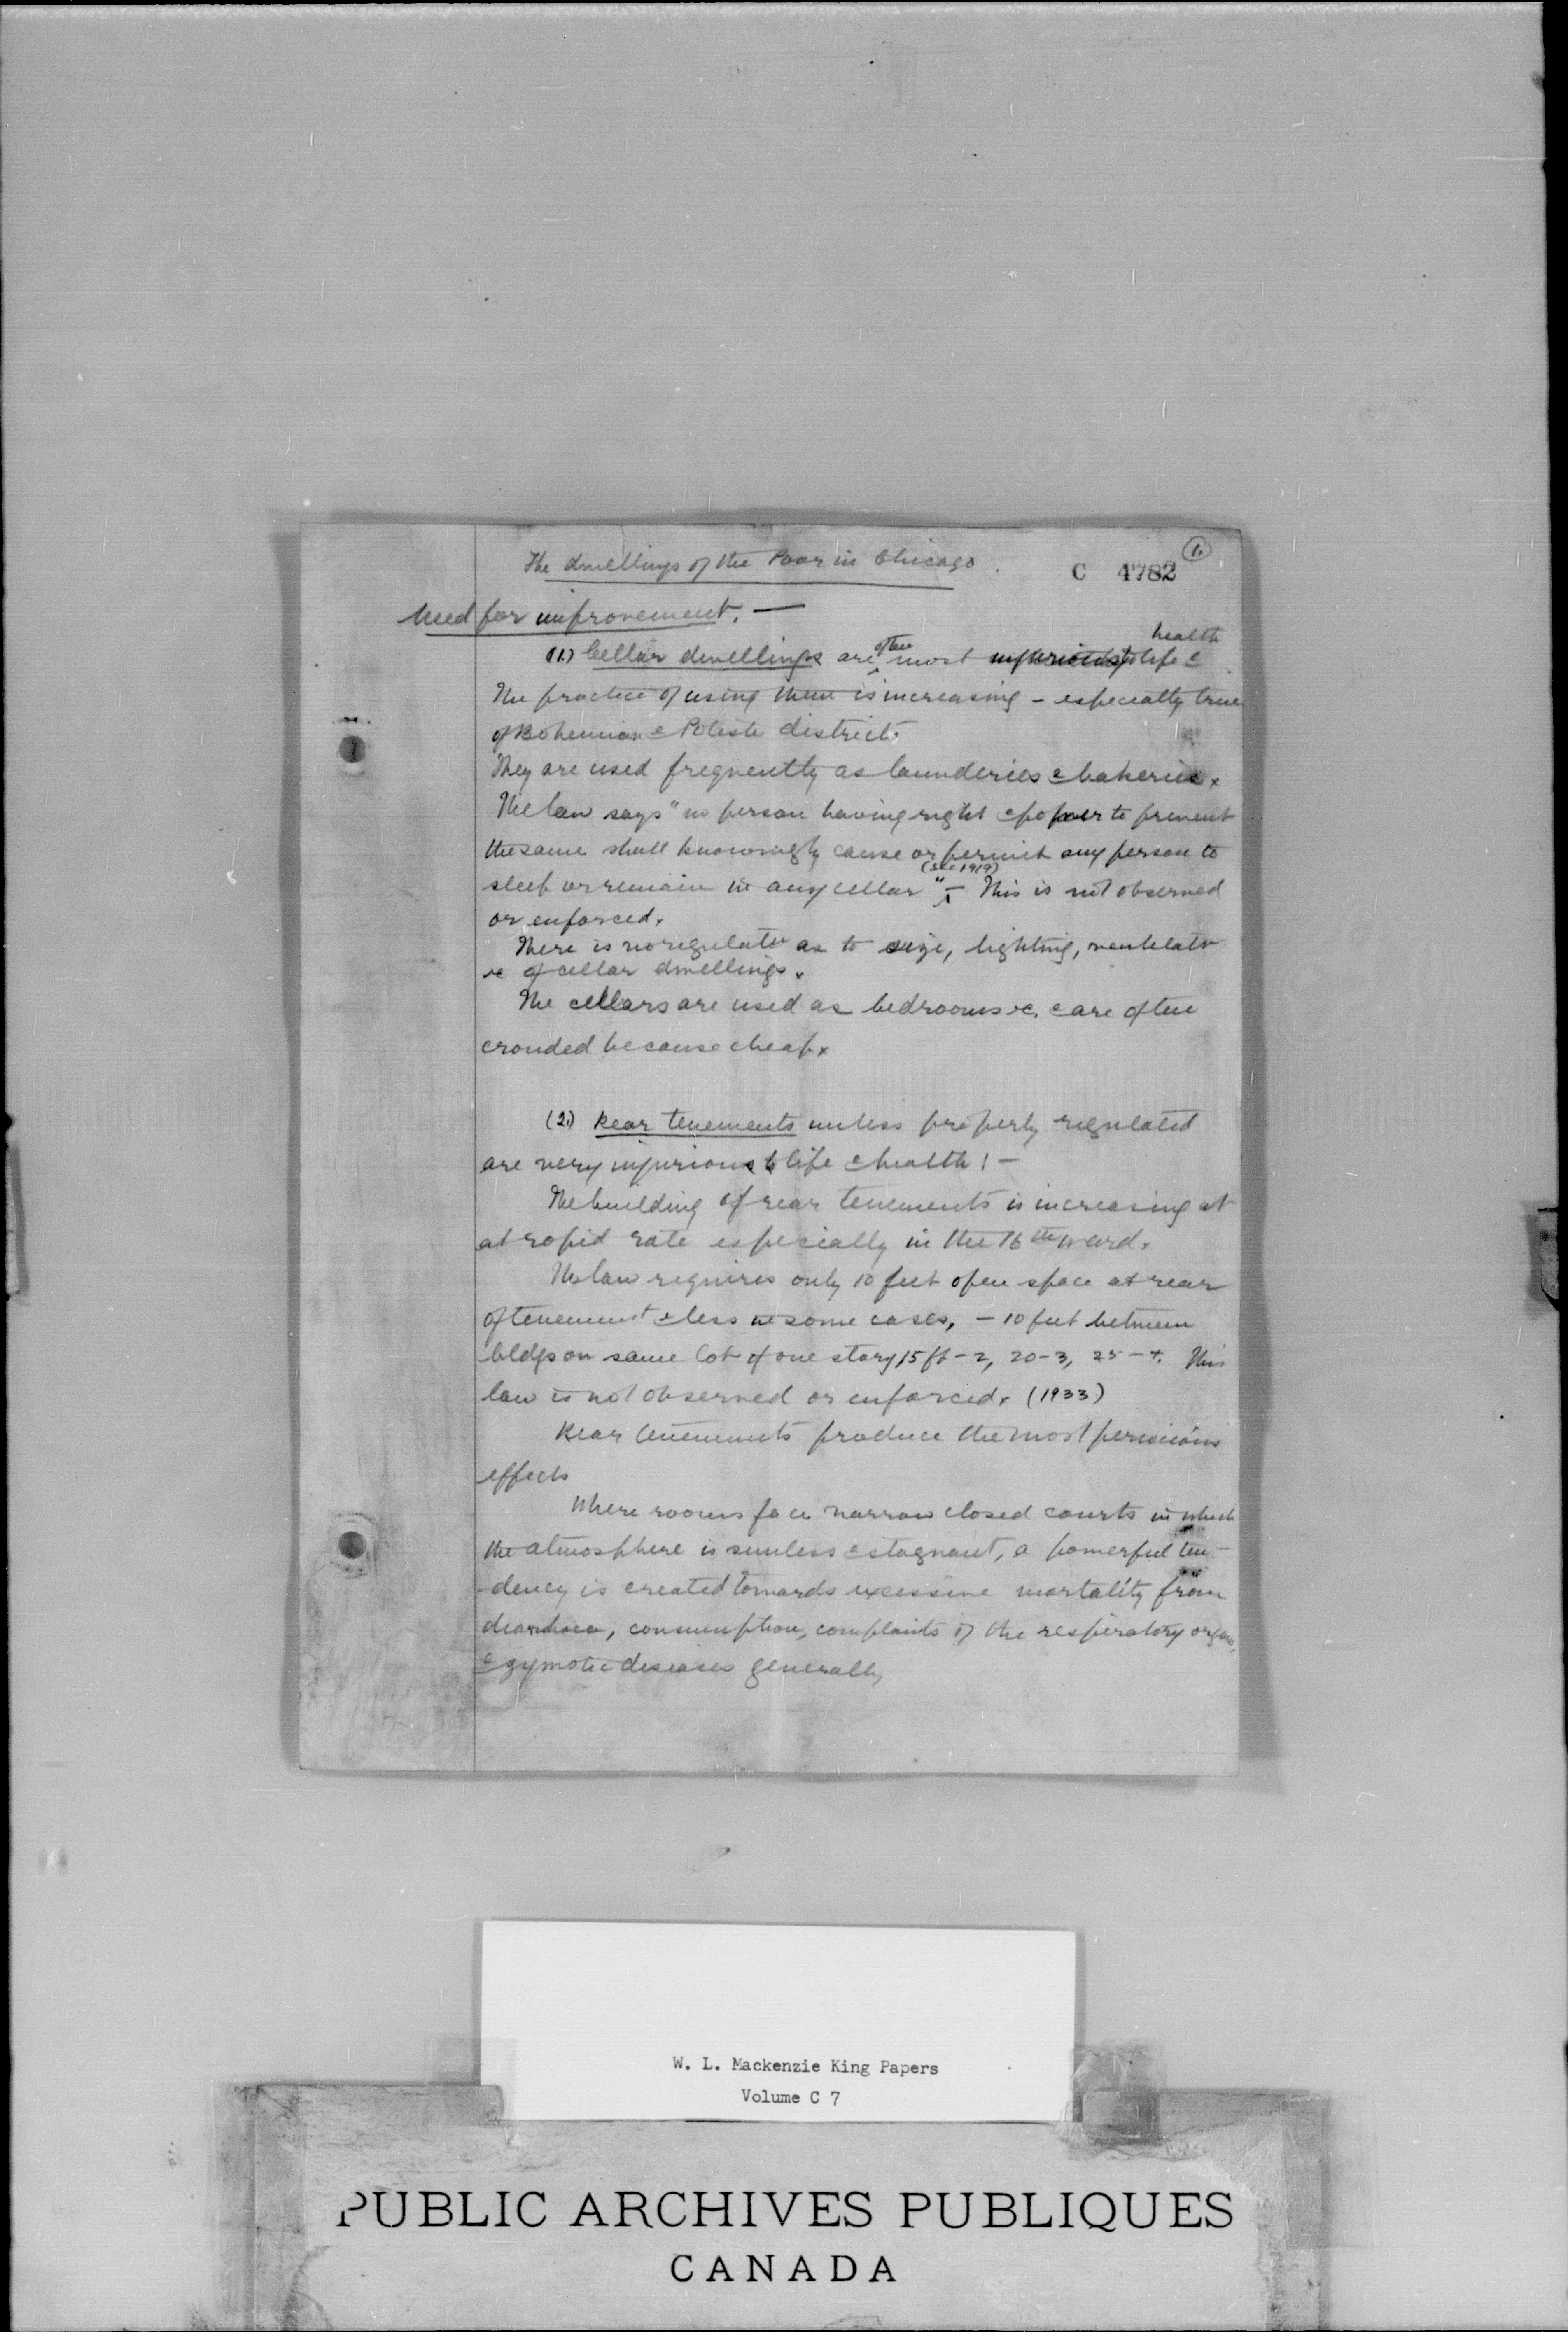 1.
The dwellings of the Poor in Chicago.
C 4782
Need for improvement. —
health
(1.) Cellar dwellings are often most injurious to life &
The practice of using them is increasing - especially true
of Bohemian & Polish districts
They are used frequently as launderies & bakeries.
The law says "no person having right & power to prevent
the same shall knowingly cause or permit any person to
(Sec 1919)
sleep or remain in any cellar" — This is not observed
or enforced.
There is no regulatn as to size, lighting, ventilatn
&c of cellar dwellings.
The cellars are used as bedrooms &c. & are often
crowded because cheap.
(2.) Rear tenements unless properly regulated
are very injurious to life & health! —
The building of rear tenements is increasing at
at rapid rate especially in the 16th ward.
The law requires only 10 feet open space at rear
of tenement & less in some cases, - 10 feet between
bldgs on same lot of one story 15 ft - 2, 20 - 3, 25 - 4. This
law is not observed or enforced. (1933)
Rear tenements produce the most pernicious
effects
Where rooms face narrow closed courts in which
the atmosphere is sunless & stagnant, a powerful ten-
dency is created towards excessive mortality from
diarrhoea, consumption, complaints of the respiratory organs,
& zymotic diseases generally
W. L. Mackenzie King Papers
Volume C 7
PUBLIC ARCHIVES PUBLIQUES
CANADA